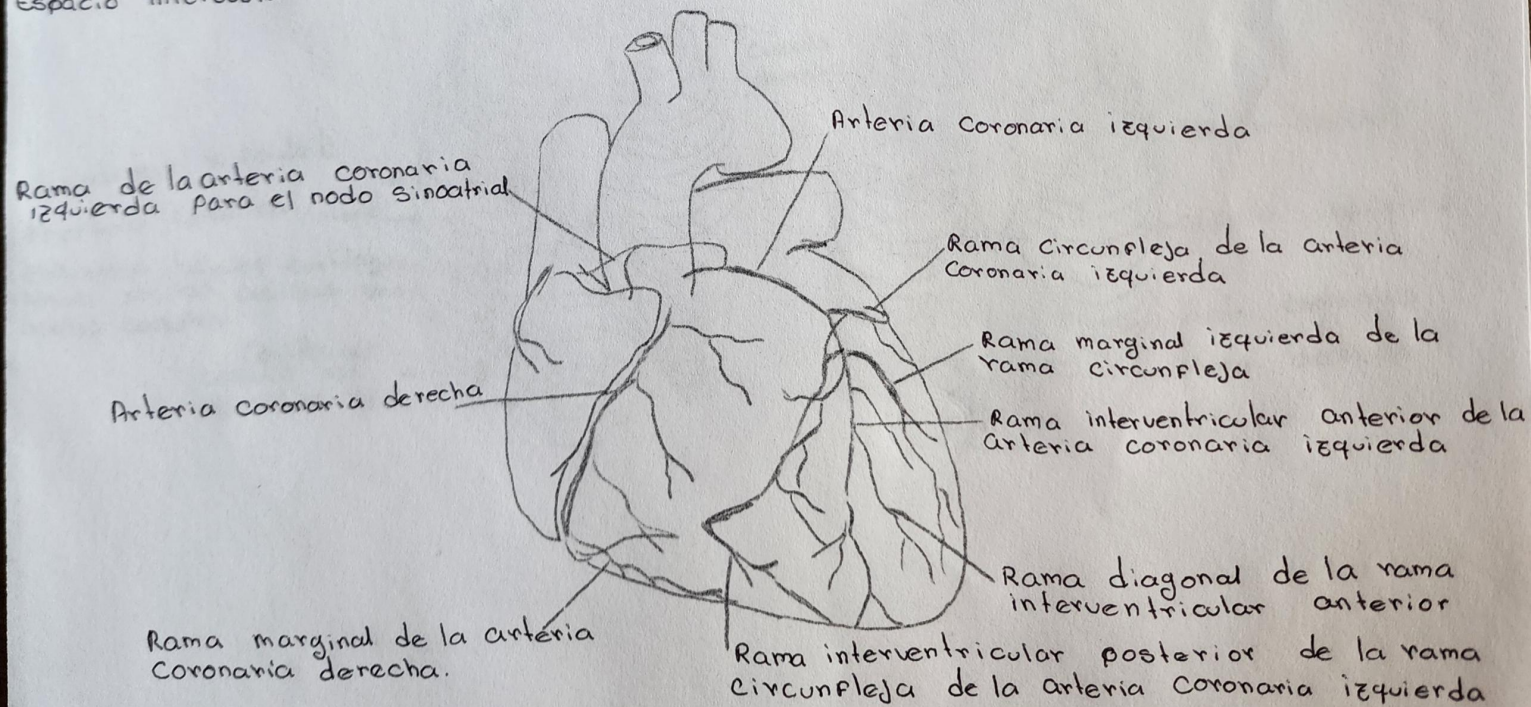 Espacio
Arteria coronaria izquierda
Rama de la arteria coronaria
izquierda para el nodo sinoatrial
Rama circunfleja de la arteria
coronaria izquierda
Rama marginal izquierda de la
rama circunfleja
Arteria coronaria derecha
Rama interventricular anterior de la
arteria coronaria izquierda
Rama diagonal de la rama
interventricular anterior
Rama marginal de la artéria
coronaria derecha.
Rama interventricular posterior de la rama
circunfleja de la arteria coronaria izquierda